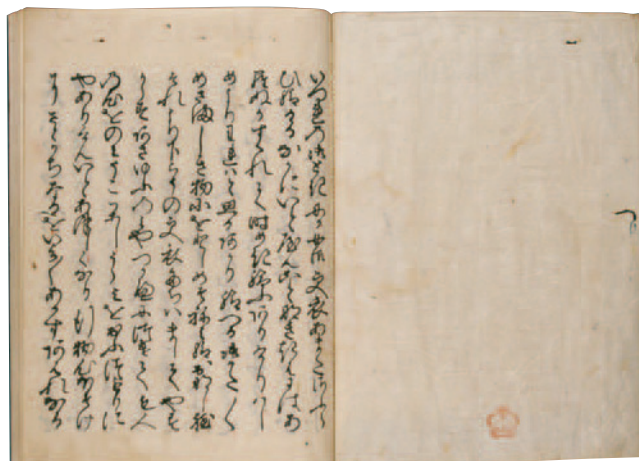 いつれの御時にか女御更衣あまたさふら
ひ給けるなかにいとやんことなききはにはあ
らぬかすくれて時めき給ふありけりはし
めよりわれはと思あかり給へる御かた〳〵
めさましき物にをとしめそねみ給おなし程
それより下らうの更衣たちはましてやす
からすあさゆふのみやつかへに付ても人
の心をのみうこかしうらみをおふつもりに
やありけんいとあつしくなり行物心ほそけ
にさとかちなるをいよ〳〵あかすあはれなる